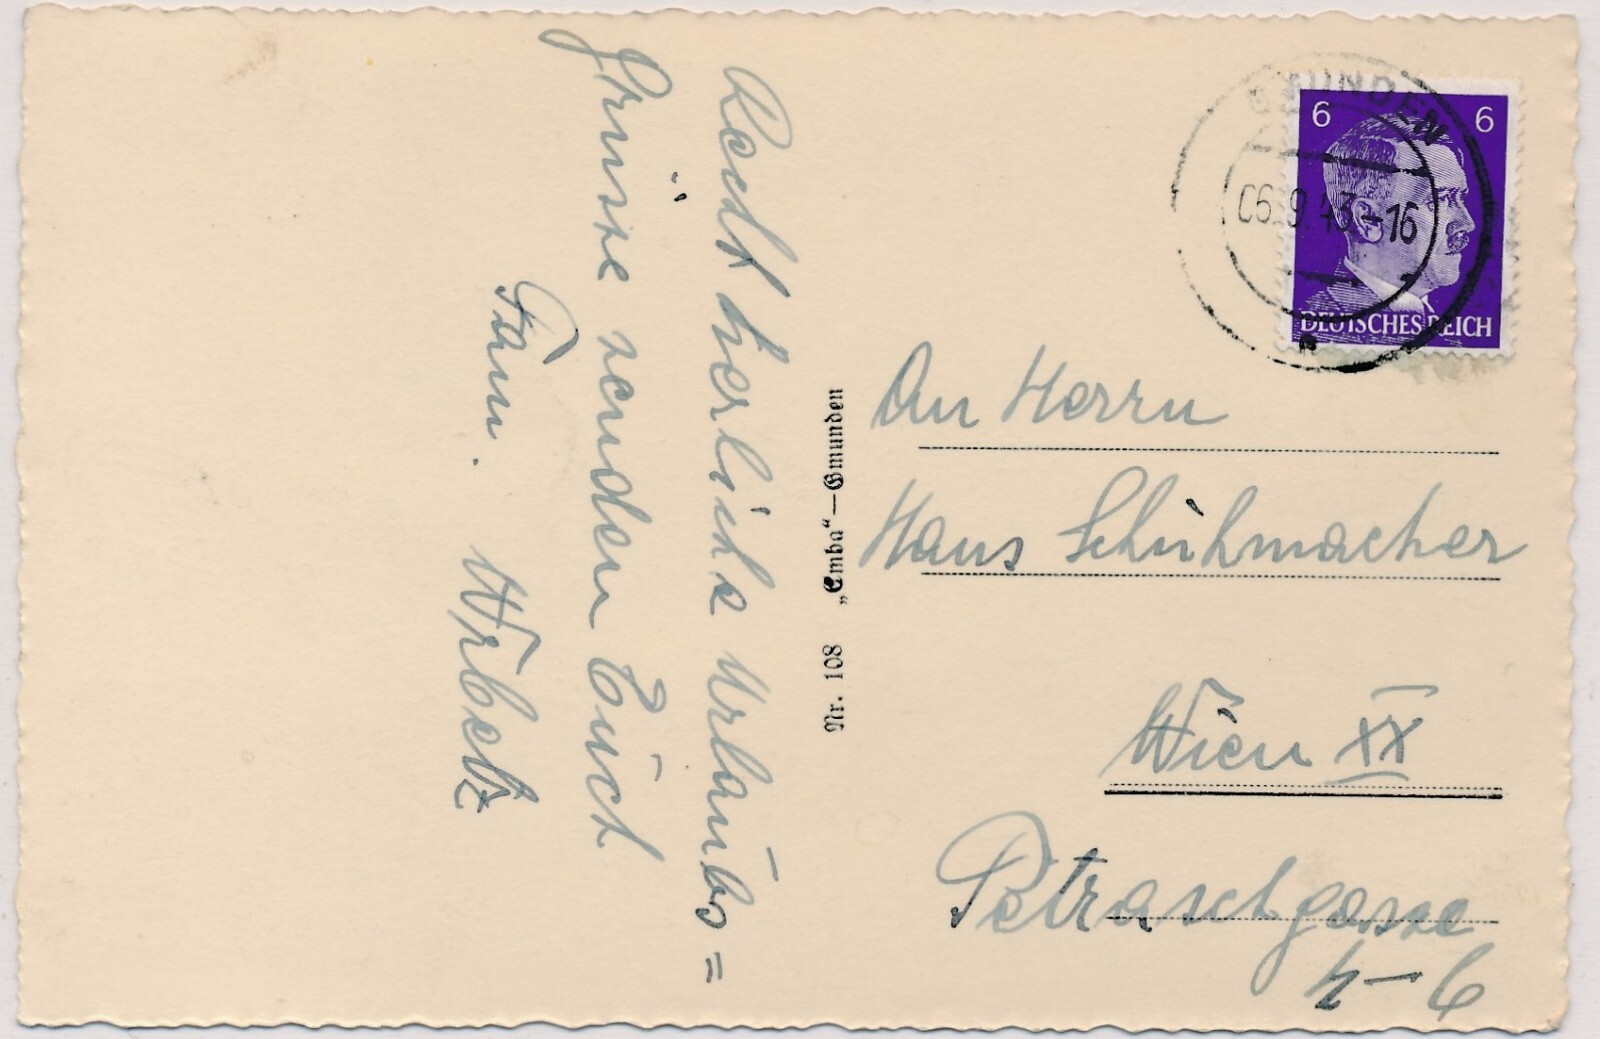 Recht herzliche Urlaubs=
Grüsse senden Euch
Fam. Wrbetz
Nr. 108 „Emba“—Gmunden
GMUNDEN
06.9.43.-16
6 6
DEUTSCHES REICH
An Herrn
Hans Schuhmacher
Wien XX
Petraschgasse
4-6